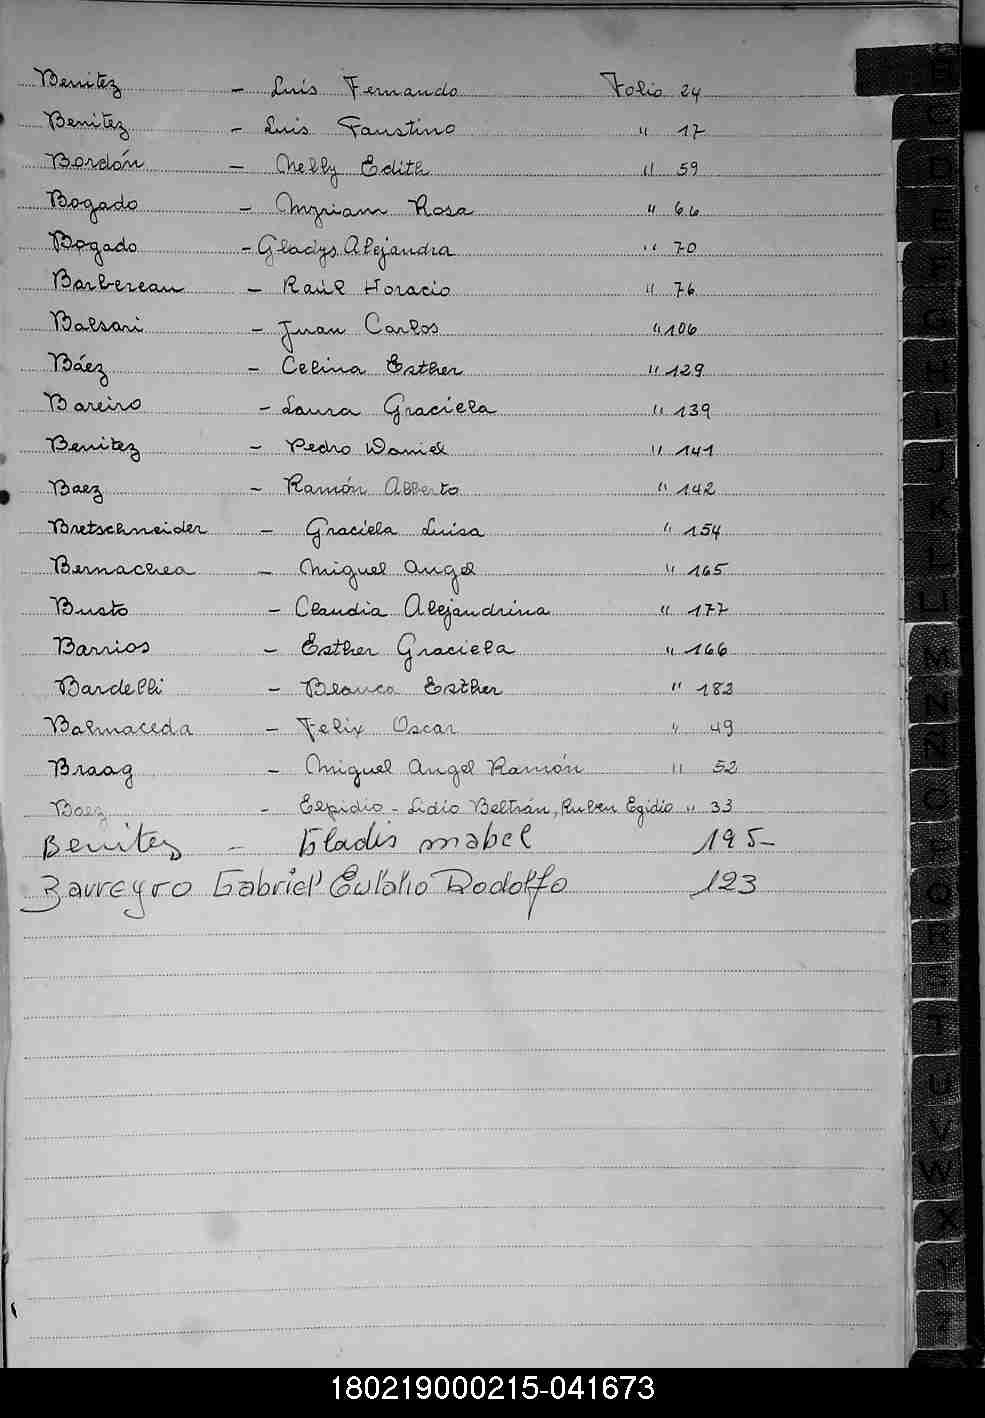 Benitez - Luis Fernando Folio 24
Benitez - Luis Faustino " 17
Bordón - Nelly Edith " 59
Bogado - Myriam Rosa " 66
Bogado - Gladys Alejandra " 70
Barbereau - Raúl Horacio " 76
Balsari - Juan Carlos " 106
Báez - Celina Esther " 129
Bareiro - Laura Graciela " 139
Benitez - Pedro Daniel " 141
Baez - Ramón Alberto " 142
Bretschneider - Graciela Luisa " 154
Bernachea - Miguel Angel " 165
Busto - Claudia Alejandrina " 177
Barrios - Esther Graciela " 166
Bardelli - Blanca Esther " 183
Balmaceda - Felix Oscar " 49
Braag - Miguel Angel Ramón " 52
Baez - Elpidio - Lidio Beltrán, Ruben Egidio " 33
Benitez - Gladis mabel 195-
Barreyro Gabriel Eulalio Rodolfo 123
B
C
D
E
F
G
H
I
J
K
L
LL
M
N
Ñ
O
P
Q
R
S
T
U
V
W
X
Y
Z
180219000215-041673